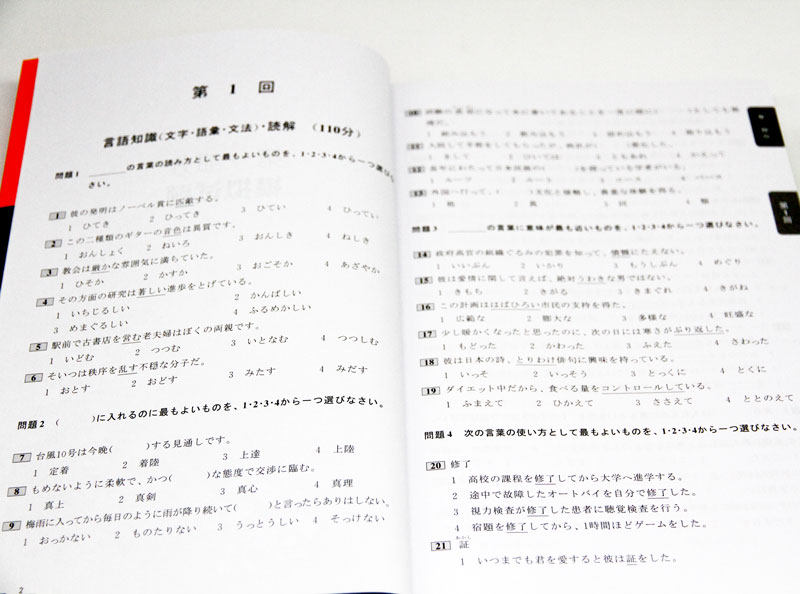 第 1 回
言語知識(文字・語彙・文法)・読解 (110分)
問題1 ______の言葉の読み方として最もよいものを、1・2・3・4から一つ選びなさい。
1 彼の発明はノーベル賞に匹敵する。
1 ひてき 2 ひってき 3 ひてい 4 ひってい
2 この二種類のギターの音色は異質です。
1 おんしょく 2 ねいろ 3 おんしき 4 ねしき
3 教会は厳かな雰囲気に満ちていた。
1 ひそか 2 かすか 3 おごそか 4 あざやか
4 その方面の研究は著しい進歩をとげている。
1 いちじるしい 2 かんばしい
3 めまぐるしい 4 ふるめかしい
5 駅前で古書店を営む老夫婦はぼくの両親です。
1 いどむ 2 つつむ 3 いとなむ 4 つつしむ
6 そいつは秩序を乱す不穏な分子だ。
1 おとす 2 おどす 3 みたす 4 みだす
問題2 ( )に入れるのに最もよいものを、1・2・3・4から一つ選びなさい。
7 台風10号は今晩( )する見通しです。
1 定着 2 着陸 3 上達 4 上陸
8 もめないように柔軟で、かつ( )な態度で交渉に臨む。
1 真上 2 真剣 3 真心 4 真理
9 梅雨に入ってから毎日のように雨が降り続いて( )と言ったらありはしない。
1 おっかない 2 ものたりない 3 うっとうしい 4 そっけない
2
問題3 ______の言葉に意味が最も近いものを、1・2・3・4から一つ選びなさい。
14 政府高官の組織ぐるみの犯罪を知って、憤慨にたえない。
1 いいぶん 2 いかり 3 もうしぶん 4 めぐり
15 彼は愛情に関して言えば、絶対うわきな男ではない。
1 きもち 2 きがる 3 きまぐれ 4 きがね
16 この計画ははばひろい市民の支持を得た。
1 広範な 2 膨大な 3 多様な 4 旺盛な
17 少し暖かくなったと思ったのに、次の日には寒さがぶり返した。
1 もどった 2 かわった 3 ふえた 4 さわった
18 彼は日本の詩、とりわけ俳句に興味を持っている。
1 いっそ 2 いっそう 3 とっくに 4 とくに
19 ダイエット中だから、食べる量をコントロールしている。
1 ふまえて 2 ひかえて 3 ささえて 4 ととのえて
問題4 次の言葉の使い方として最もよいものを、1・2・3・4から一つ選びなさい。
20 修了
1 高校の課程を修了してから大学へ進学する。
2 途中で故障したオートバイを自分で修了した。
3 視力検査が修了した患者に聴覚検査を行う。
4 宿題を修了してから、1時間ほどゲームをした。
21 証
1 いつまでも君を愛すると彼は証をした。
第1回